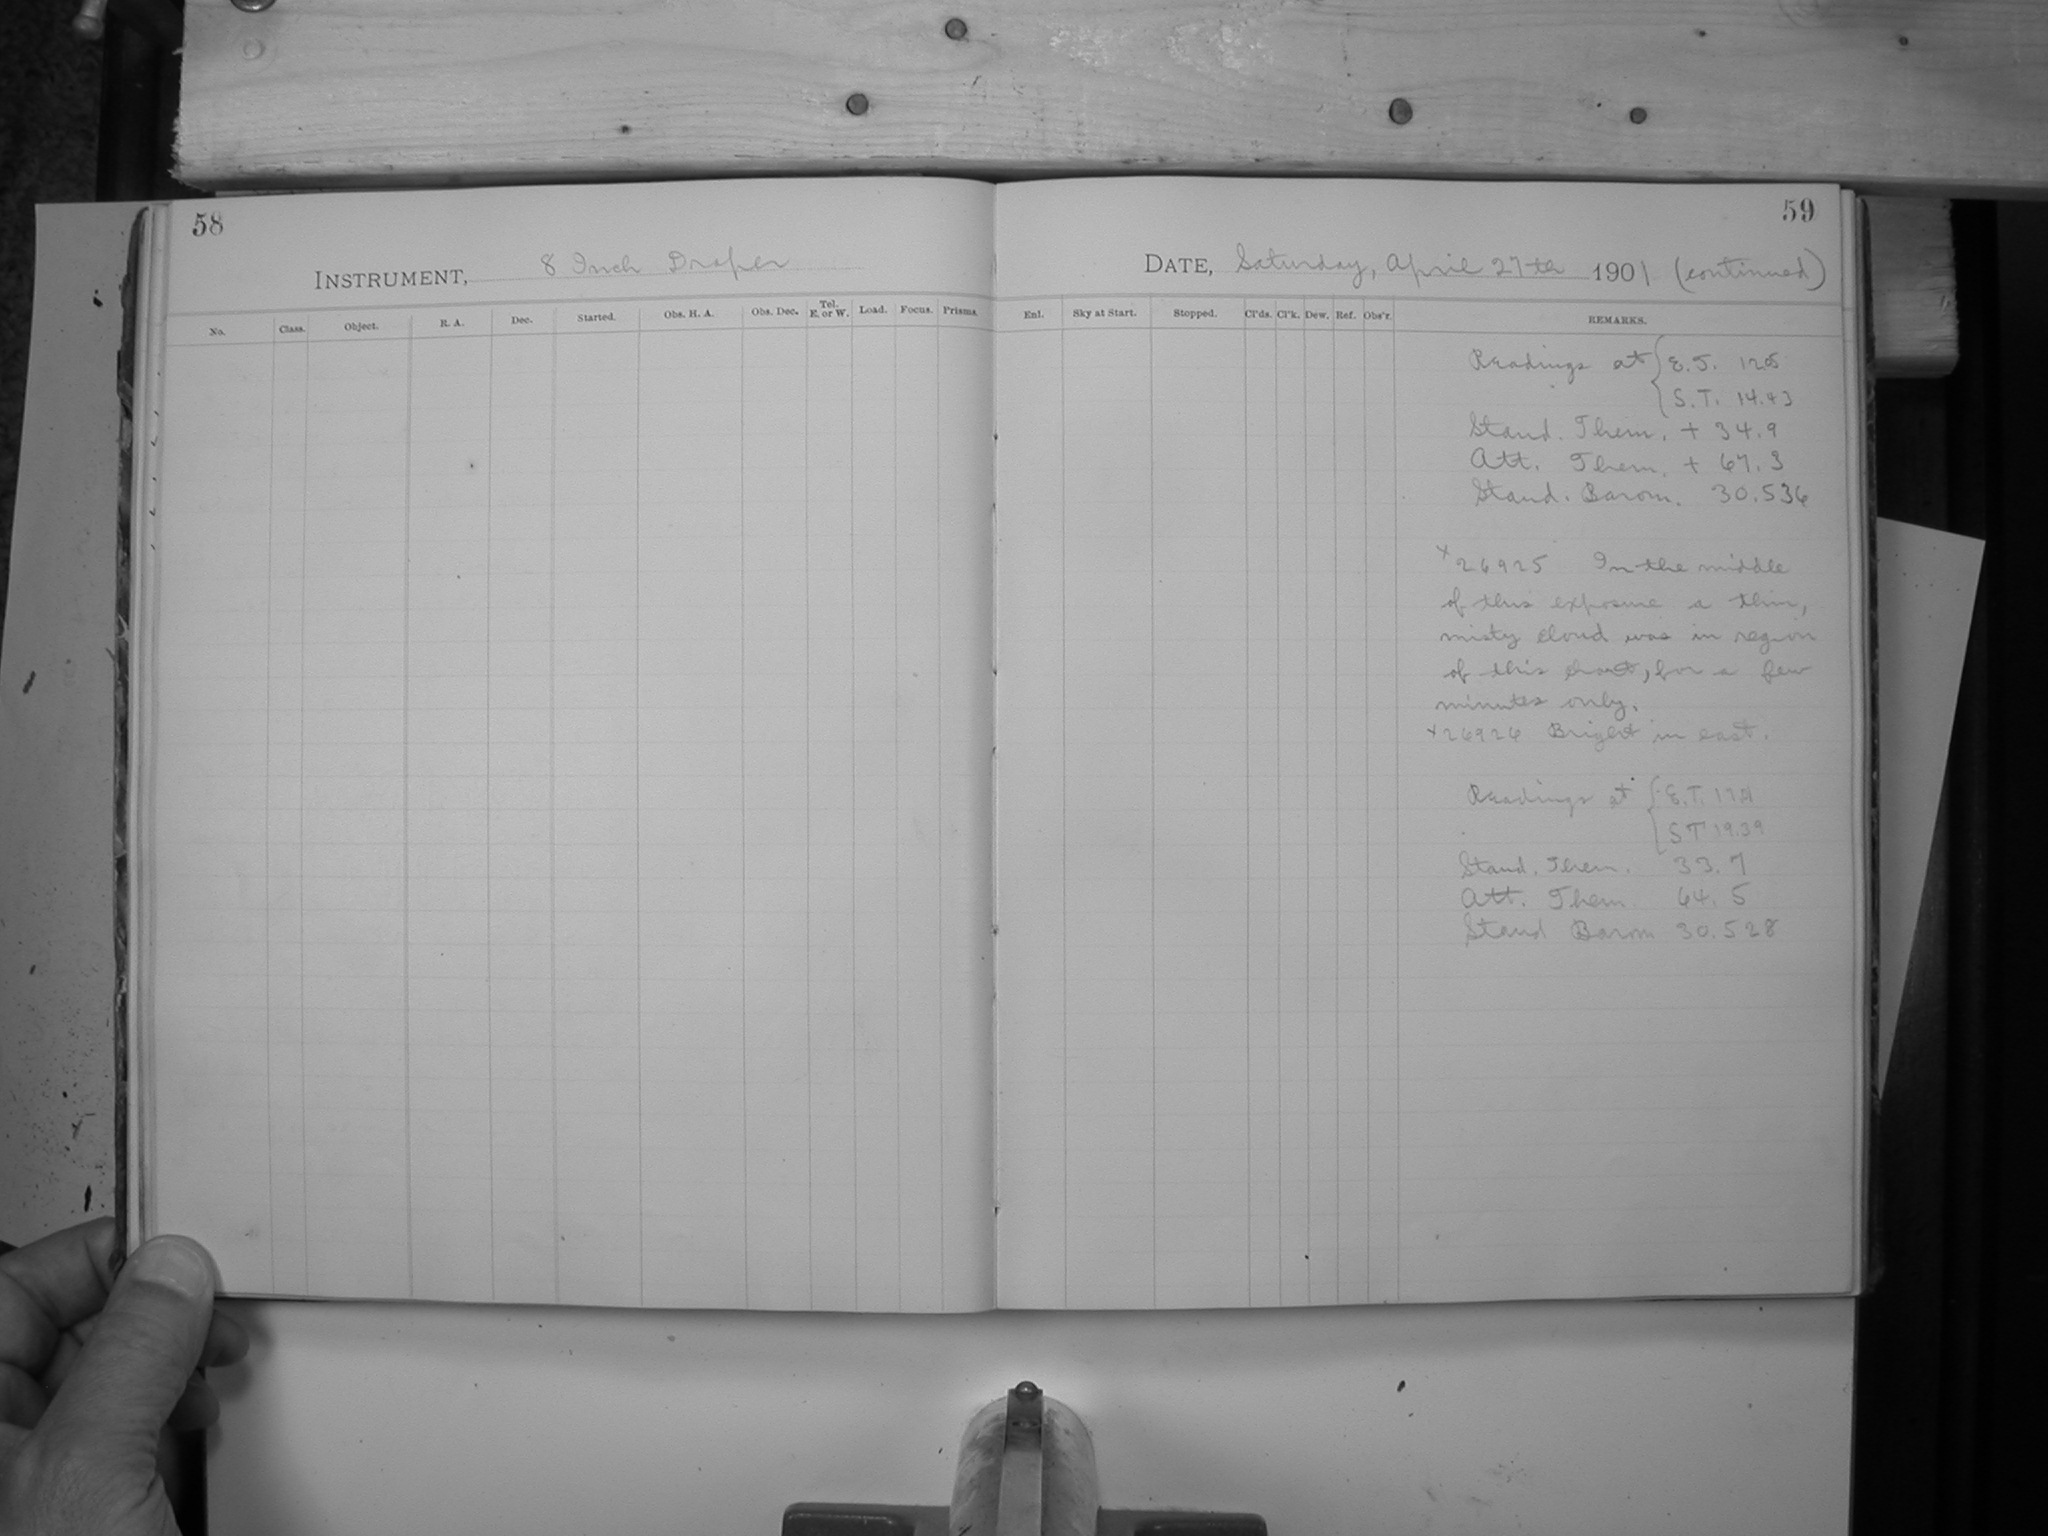 58
59
INSTRUMENT, 8 Inch Draper
DATE, Saturday, April 27th 1901 (continued)
No. Class. Object. R. A. Dec. Started. Obs. H. A. Obs. Dec. Tel. E. or W. Load. Focus. Prisms. Enl. Sky at Start. Stopped. Cl'ds. Cl'k. Dew. Ref. Obs'r. REMARKS.
Readings at E.T.
S.T. 14.43
Stand. Them. + 34.9
Att. Them. + 67.3
Stand. Barom. 30.536
x26925 In the middle
of this exposure a thin,
misty cloud was in region
of this chart, for a few
minutes only.
x26926 Bright in east.
Readings at E.T.
S T 19.39
Stand. Them. 33.7
Att. Them 64.5
Stand Barom 30.528